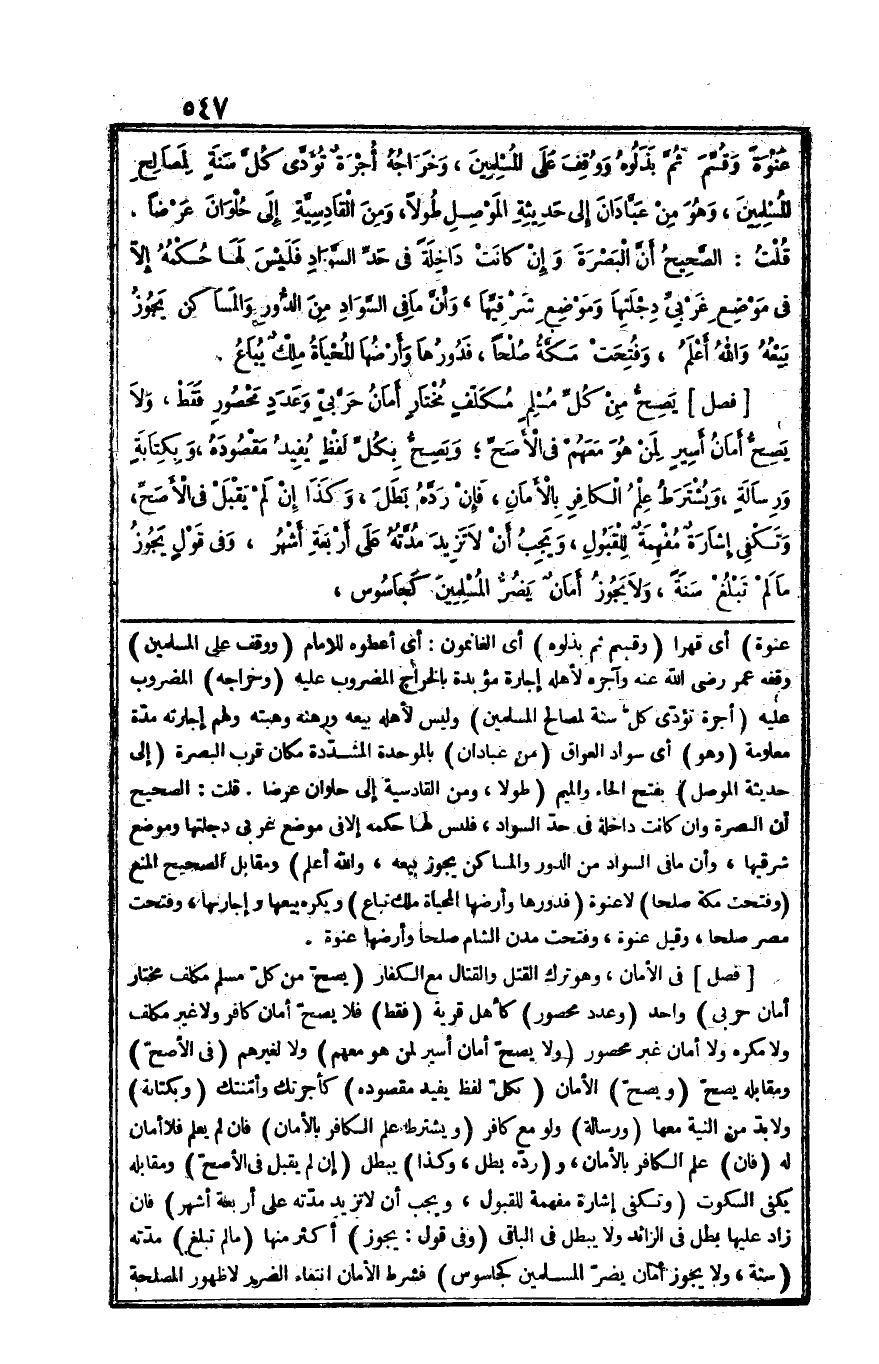 ٥٤٧
عَنْوَةً وَقُسِّمَ ثُمَّ بَذَلُوهُ وَوُقِفَ عَلَى الْمُسْلِمِينَ ، وَخَرَاجُهُ أُجْرَةٌ تُؤَدَّى كُلَّ سَنَةٍ لِمَصَالِحِ
الْمُسْلِمِينَ ، وَهُوَ مِنْ عَبَّادَانَ إِلَى حَدِيثَةِ الْمَوْصِلِ طُولاً، وَمِنَ الْقَادِسِيَّةِ إِلَى حُلْوَانَ عَرْضاً .
قُلْتُ : الصَّحِيحُ أَنَّ الْبَصْرَةَ وَإِنْ كَانَتْ دَاخِلَةً فِى حَدِّ السَّوَادِ فَلَيْسَ لَهَا حُكْمُهُ إِلاَّ
فِى مَوْضِعِ غَرْبِيِّ دِجْلَتِهَا وَمَوْضِعِ شَرْقِيِّهَا ، وَأَنَّ مَافِى السَّوَادِ مِنَ الدُّورِ وَالْمَسَاكِنِ يَجُوزُ
بَيْعُهُ وَاللهُ أَعْلَمُ ، وَفُتِحَتْ مَكَّةُ صُلْحاً ، فَدُورُهَا وَأَرْضُهَا الْمُحْيَاةُ مِلْكٌ يُبَاعُ .
[ فصل ] يَصِحُّ مِنْ كُلِّ مُسْلِمٍ مُكَلَّفٍ مُخْتَارٍ أَمَانُ حَرْبِيٍّ وَعَدَدٍ مَحْصُورٍ فَقَطْ ، وَلاَ
يَصِحُّ أَمَانُ أَسِيرٍ لِمَنْ هُوَ مَعَهُمْ فِى الْأَصَحِّ ؛ وَيَصِحُّ بِكُلِّ لَفْظٍ يُفِيدُ مَقْصُودَهُ ، وَبِكِتَابَةٍ
وَرِسَالَةٍ ، وَيُشْتَرَطُ عِلْمُ الْكَافِرِ بِالْأَمَانِ ، فَإِنْ رَدَّهُ بَطَلَ ، وَكَذَا إِنْ لَمْ يَقْبَلْ فِى الْأَصَحِّ،
وَتَكْفِى إِشَارَةٌ مُفْهِمَةٌ لِلْقَبُولِ ، وَيَجِبُ أَنْ لاَتَزِيدَ مُدَّتُهُ عَلَى أَرْبَعَةِ أَشْهُرٍ ، وَفِى قَوْلٍ يَجُوزُ
مَالَمْ تَبْلُغْ سَنَةً ، وَلاَيَجُوزُ أَمَانٌ يَضُرُّ الْمُسْلِمِينَ كَجَاسُوسٍ ،
عنوة ) أى قهرا ( وقسم ثم بذلوه ) أى الغانمون : أى أعطوه للامام ( ووقف على المسلمين )
وقفه عمر رضى الله عنه وآجره لأهله إجارة مؤبدة بالخراج المضروب عليه ( وخراجه ) المضروب
عليه ( أجرة تؤدّى كلّ سنة لمصالح المسلمين ) وليس لأهله بيعه ورهنه وهبته ولهم إجارته مدّة
معلومة ( وهو ) أى سواد العواق ( من عبادان ) بالموحدة المشدّدة مكان قرب البصرة ( إلى
حديثة الموصل ) بفتح الحاء والميم ( طولا ، ومن القادسية إلى حلوان عرضا . قلت : الصحيح
أن البصرة وان كانت داخلة فى حدّ السواد ، فليس لها حكمه إلافى موضع غربى دجلتها وموضع
شرقيها ، وأن مافى السواد من الدور والمساكن يجوز بيعه ، والله أعلم ) ومقابل الصحيح المنع
( وفتحت مكة صلحا ) لاعنوة ( فدورها وأرضها المحياة ملك تباع ) ويكره بيعها وإجارتها ، وفتحت
مصر صلحا ، وقيل عنوة ، وفتحت مدن الشام صلحا وأرضها عنوة .
[ فصل ] فى الأمان ، وهو ترك القتل والقتال مع الكفار ( يصحّ من كلّ مسلم مكلف مختار
أمان حربى ) واحد ( وعدد محصور ) كأهل قرية ( فقط ) فلا يصحّ أمان كافر ولاغير مكلف
ولا مكره ولا أمان غير محصور ( ولا يصحّ أمان أسير لمن هو معهم ) ولا لغيرهم ( فى الأصحّ )
ومقابله يصحّ ( ويصحّ ) الأمان ( بكلّ لفظ يفيد مقصوده ) كأجرتك وأمّنتك ( وبكتابة )
ولابدّ من النية معها ( ورسالة ) ولو مع كافر ( ويشترط علم الكافر بالأمان ) فان لم يعلم فلاأمان
له ( فان ) علم الكافر بالأمان ، و ( ردّه بطل ، وكذا ) يبطل ( إن لم يقبل فى الأصحّ ) ومقابله
يكفى السكوت ( وتكفى إشارة مفهمة للقبول ، ويجب أن لاتزيد مدّته على أربعة أشهر ) فان
زاد عليها بطل فى الزائد ولا يبطل فى الباقى ( وفى قول : يجوز ) أكثر منها ( مالم تبلغ ) مدّته
( سنة ، ولا يجوز أمان يضرّ المسلمين كجاسوس ) فشرط الأمان انتفاء الضرر لاظهور المصلحة